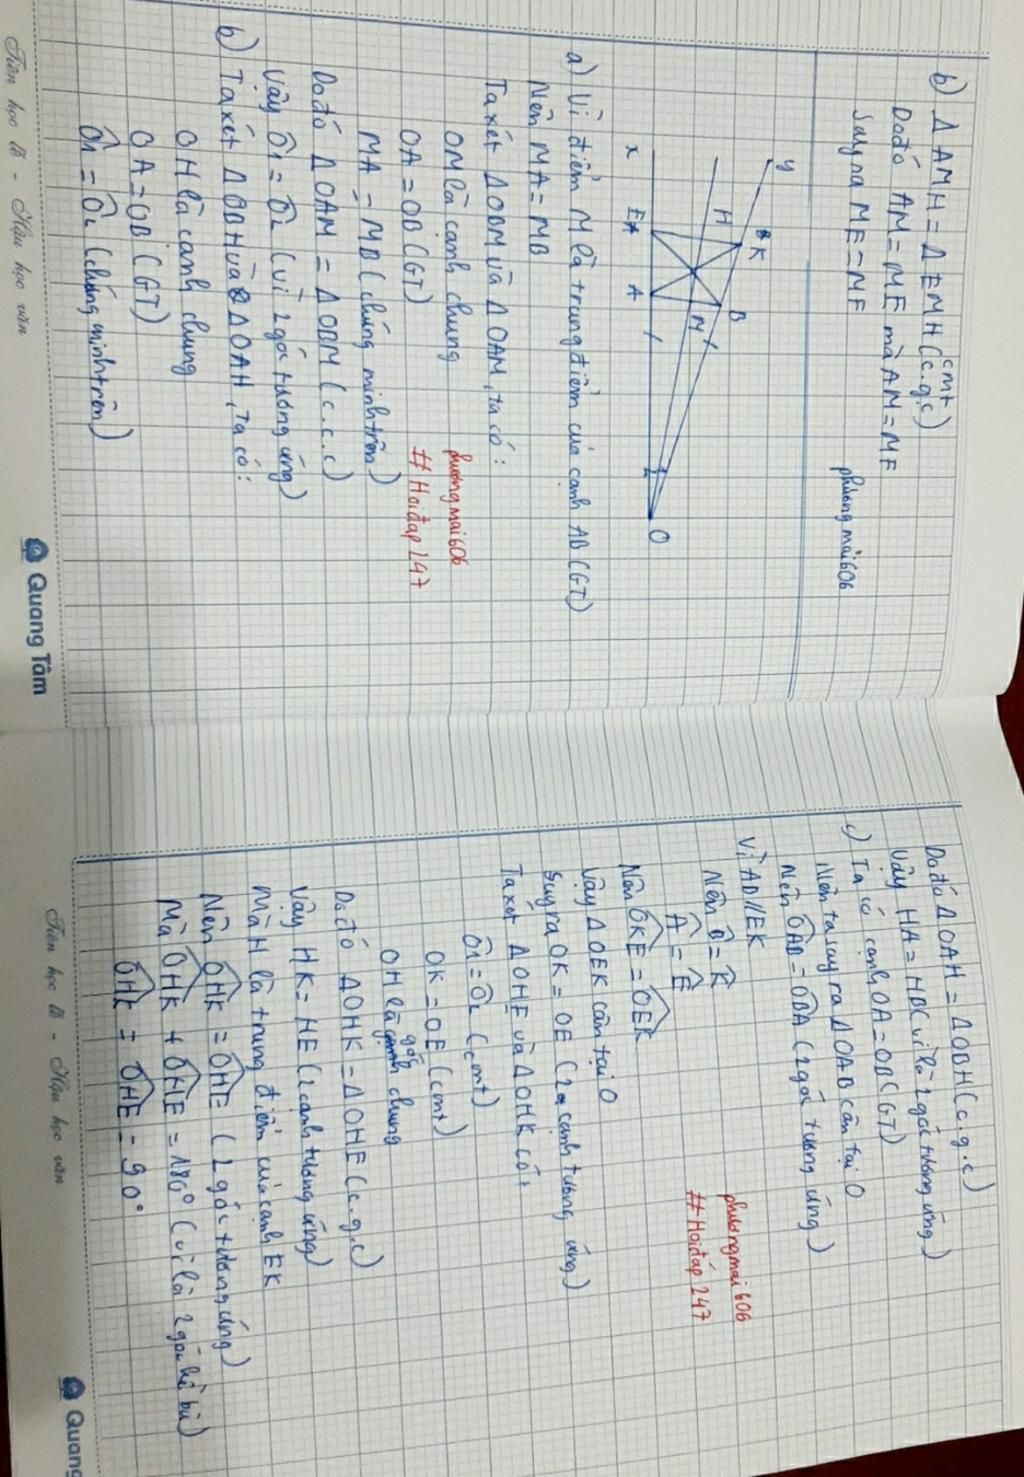 b) Δ AMH = Δ EMH (c.g.c) cmt
Do đó AM = ME mà AM = MF
Suy ra ME = MF
phương mai 606
y
K
H
B
M
x
E
A
O
a) Vì điểm M là trung điểm của cạnh AB (GT)
Nên MA = MB
Ta xét Δ OBM và Δ OAM, ta có:
OM là cạnh chung
OA = OB (GT)
MA = MB (chứng minh trên)
Do đó Δ OAM = Δ OBM (c.c.c)
Vậy Ô1 = Ô2 (vì 2 góc tương ứng)
phuongmai606
# Hoidap 247
b) Ta xét Δ OBH và Δ OAH, ta có:
OH là cạnh chung
OA = OB (GT)
Ô1 = Ô2 (chứng minh trên)
Quang Tâm
Tiên học lễ - Hậu học văn
Do đó Δ OAH = Δ OBH (c.g.c)
Vậy HA = HB (vì là 2 góc tương ứng)
c) Ta có cạnh OA = OB (GT)
Nên ta suy ra Δ OAB cân tại O
Nên OAB = OBA (2 góc tương ứng)
Vì AB // EK
Nên B̂ = K̂
Â = Ê
Nên OKE = OEK
Vậy Δ OEK cân tại O
Suy ra OK = OE (2 cạnh tương ứng)
phuongmai606
# Hoidap 247
Ta xét Δ OHE và Δ OHK có:
Ô1 = Ô2 (cmt)
OK = OE (cmt)
OH là góc chung
Do đó Δ OHK = Δ OHE (c.g.c)
Vậy HK = HE (2 cạnh tương ứng)
Mà H là trung điểm của cạnh EK
Nên OHK = OHE (2 góc tương ứng)
Mà OHK + OHE = 180° (vì là 2 góc kề bù)
OHK = OHE = 90°
Tiên học lễ - Hậu học văn
Quang